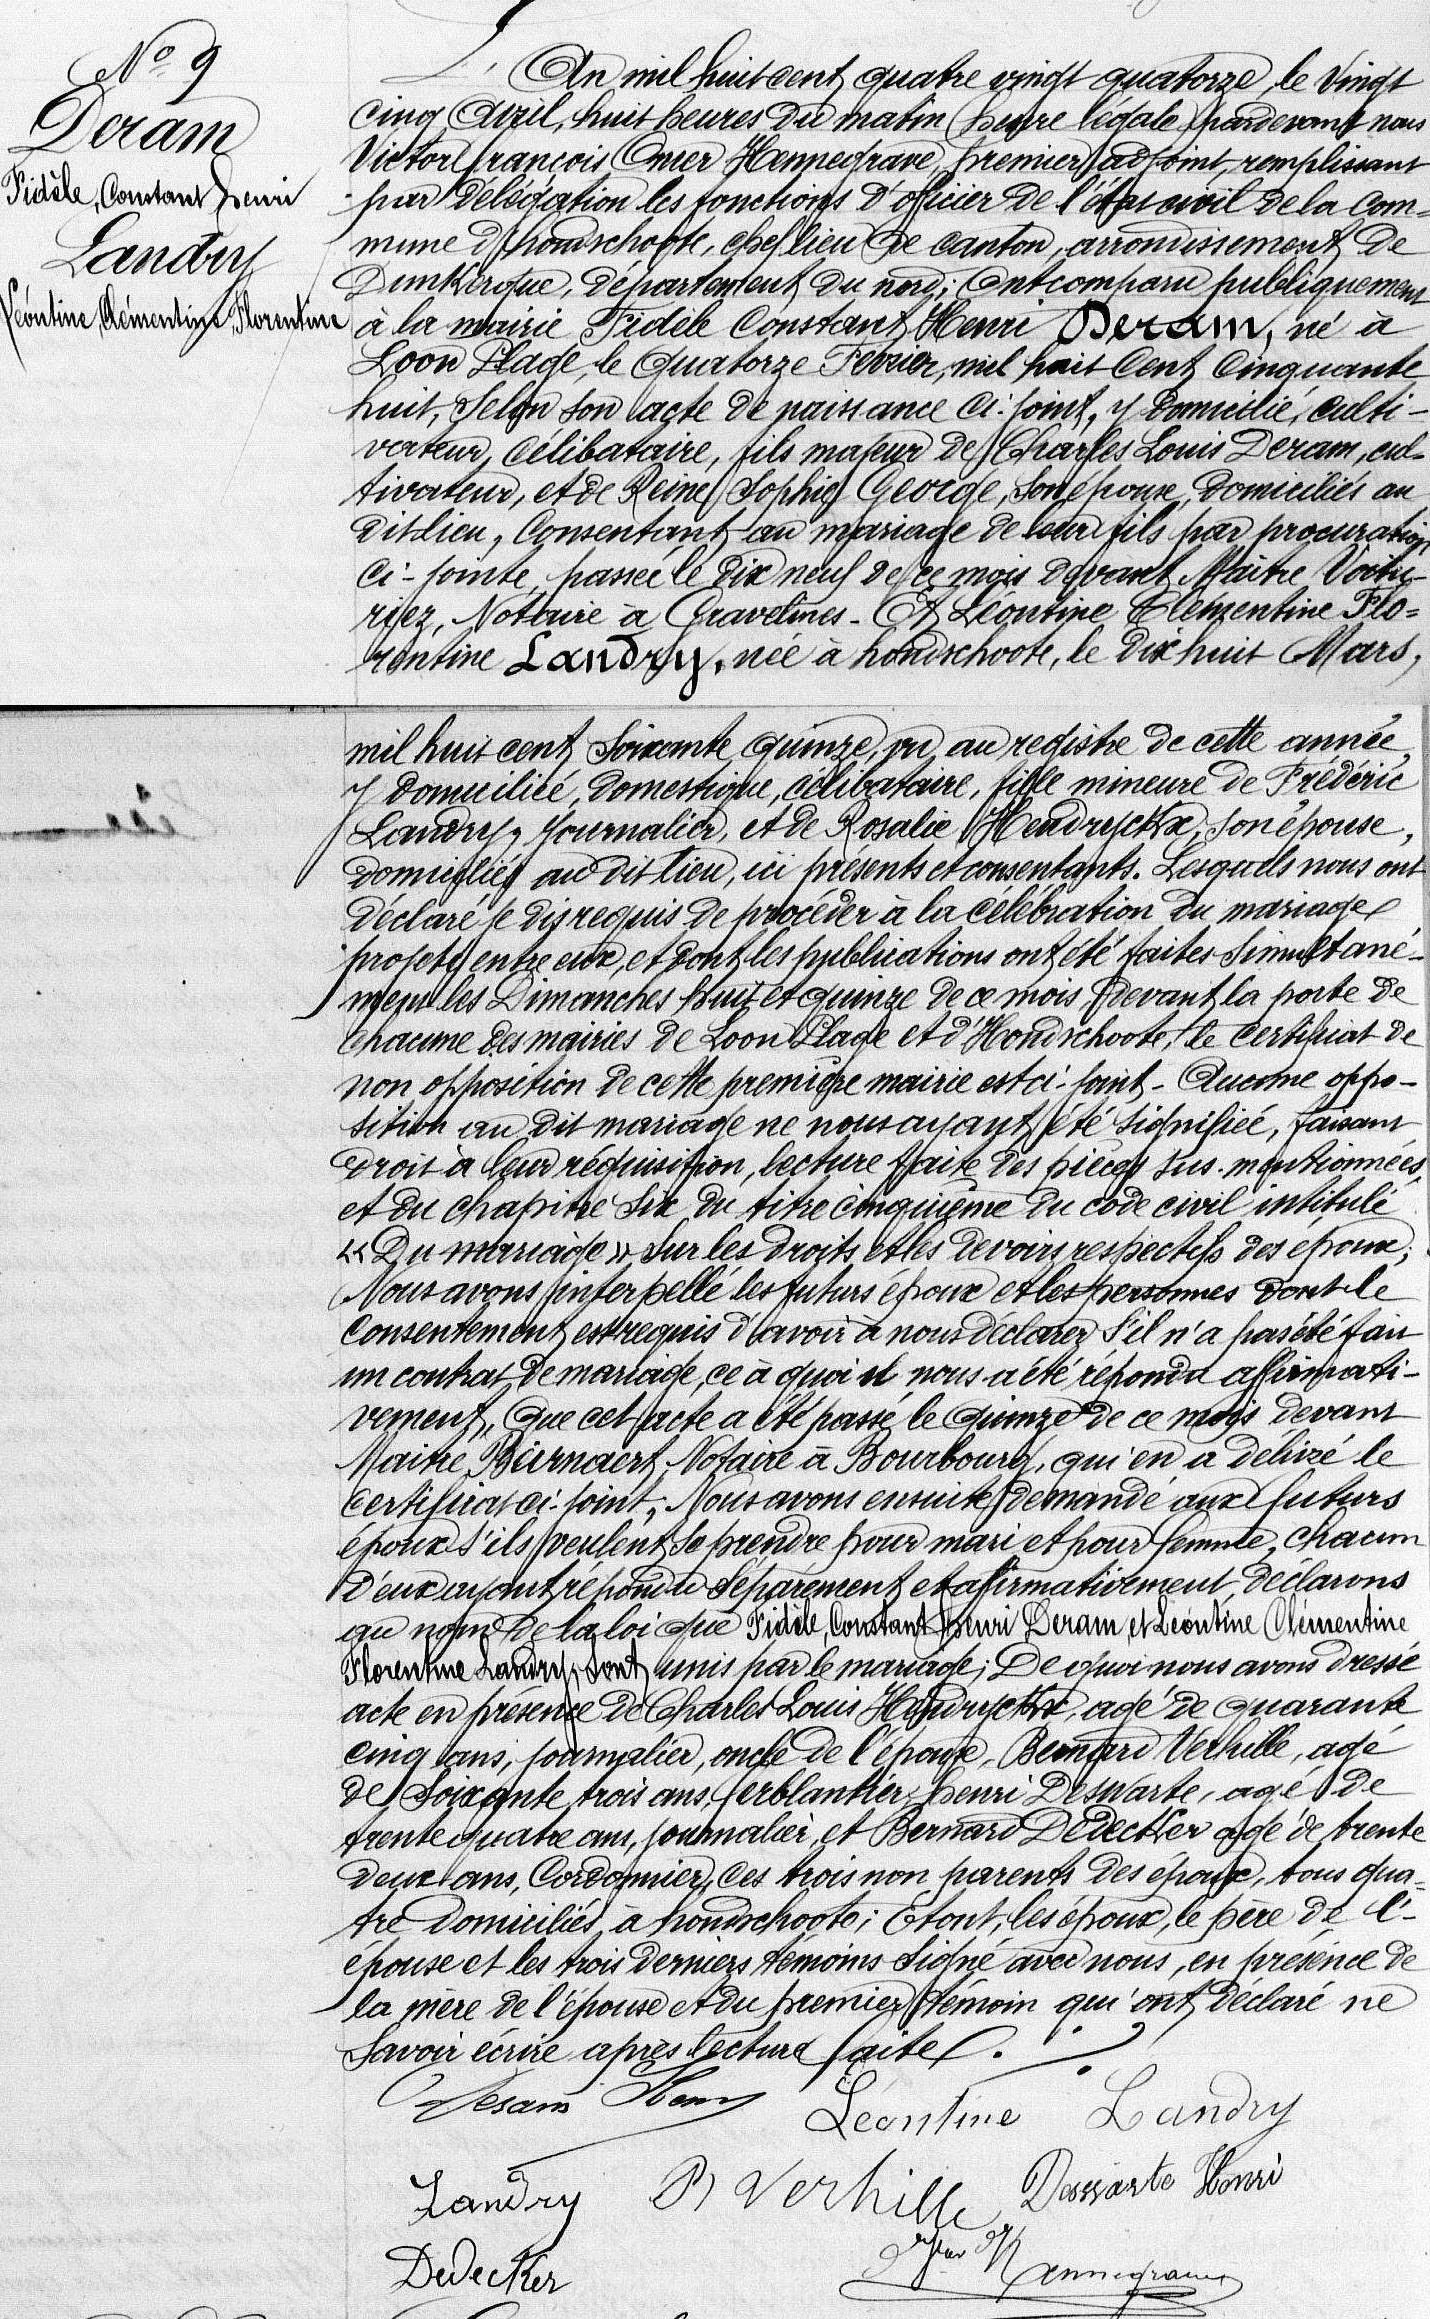 N° 9
Deram
Fidèle, Constant Henri
Landry
Léontine Clémentine Florentine
L'An mil huit cent quatre vingt quatorze, le vingt
cinq Avril, huit heures du matin (heure légale) pardevant nous
Victor François Omer Hennegrave, premier adjoint, remplissant
par délégation les fonctions d'officier de l'état civil de la com=
mune d'hondschoote, chef lieu de canton, arrondissement de
Dunkerque, département du nord; Ont comparu publiquement
à la mairie Fidèle Constant Henri Deram, né à
Loon Plage, le quatorze Février, mil huit Cent Cinquante
huit, Selon son acte de naissance ci-joint, y domicilié, culti-
vateur, célibataire, fils majeur de Charles Louis Deram, cul-
tivateur, et de Reine Sophie George, son épouse, domiciliés au
dit lieu, Consentant au mariage de leur fils par procuration
ci-jointe, passée le dix neuf de ce mois devant Maître Voitu-
riez, Notaire à Gravelines - Et Léontine Clémentine Flo=
rentine Landry, née à hondschoote, le dix huit Mars,
mil huit cent Soixante quinze, vu au registre de cette année,
y domiciliée, domestique, célibataire, fille mineure de Frédéric
Landry, Journalier, et de Rosalie Hendryckx, son épouse,
domiciliés au dit lieu, ici présents et consentants. Lesquels nous ont
déclaré et requis de procéder à la célébration du mariage
projeté entre eux, et dont les publications ont été faites Simultané-
ment les Dimanches huit et quinze de ce mois devant la porte de
chacune des mairies de Loon Plage et d'Hondschoote, le certificat de
non opposition de cette première mairie est ci-joint - Aucune oppo-
sition au dit mariage ne nous ayant été signifiée, faisant
droit à leur réquisition, lecture faite des pièces sus-mentionnées,
et du chapitre six du titre cinquième du code civil intitulé
« Du mariage » sur les droits et les devoirs respectifs des époux;
Nous avons interpellé les futurs époux et les personnes dont le
Consentement est requis d'avoir à nous déclarer s'il n'a pas été fait
un contrat de mariage, ce à quoi il nous a été répondu affirmati-
vement, Que cet acte a été passé le Quinze de ce mois devant
Maître Biernaert, Notaire à Bourbourg, qui en a délivré le
certificat ci-joint; Nous avons ensuite demandé aux futurs
époux s'ils veulent se prendre pour mari et pour femme, chacun
d'eux ayant répondu séparément et affirmativement, déclarons
au nom de la loi que Fidèle, Constant Henri Deram, et Léontine Clémentine
Florentine Landry, sont unis par le mariage; De quoi nous avons dressé
acte en présence de Charles Louis Hendryckx, agé de quarante
cinq ans, journalier, oncle de l'épouse, Bernard Verhille, agé
de soixante trois ans, ferblantier, henri Deswarte, agé de
trente quatre ans, journalier, et Bernard Dedecker agé de trente
deux ans, Cordonnier, ces trois non parents des époux, tous qua=
tre domiciliés à hondschoote; Et ont, les époux, le père de l'-
épouse et les trois derniers témoins signé avec nous, en présence de
la mère de l'épouse et du premier témoin qui ont déclaré ne
savoir écrire après lecture faite.
Deram Henri
Léontine Landry
Landry
B Verhille
Deswarte Henri
Dedecker
Hennegrave